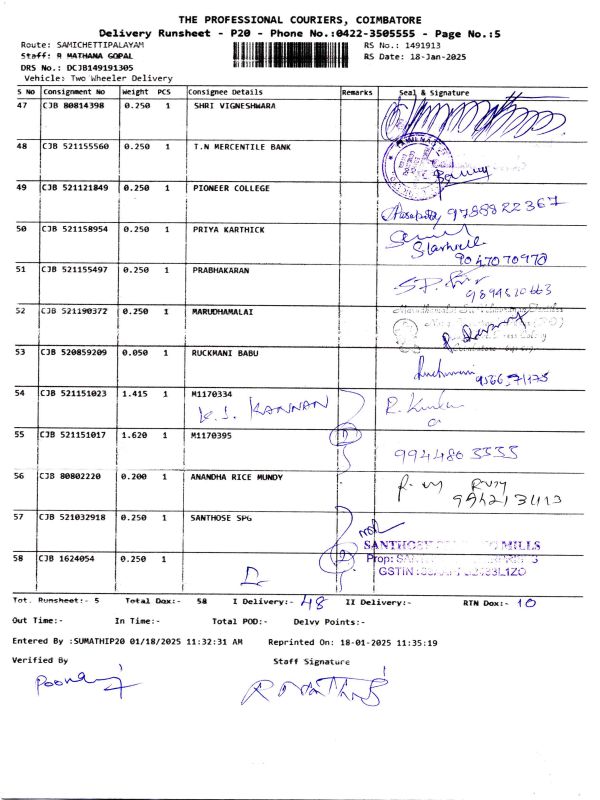 THE PROFESSIONAL COURIERS, COIMBATORE
Delivery Runsheet - P20 - Phone No.:0422-3505555 - Page No.:5
Route: SAMICHETTIPALAYAM RS No.: 1491913
Staff: R MATHANA GOPAL RS Date: 18-Jan-2025
DRS No.: DCJB149191305
Vehicle: Two Wheeler Delivery
S No Consignment No Weight PCS Consignee Details Remarks Seal & Signature
47 CJB 80814398 0.250 1 SHRI VIGNESHWARA
48 CJB 521155560 0.250 1 T.N MERCENTILE BANK
49 CJB 521121849 0.250 1 PIONEER COLLEGE
9788822367
50 CJB 521158954 0.250 1 PRIYA KARTHICK
9047070970
51 CJB 521155497 0.250 1 PRABHAKARAN
52 CJB 521190372 0.250 1 MARUDHAMALAI
53 CJB 520859209 0.050 1 RUCKMANI BABU
54 CJB 521151023 1.415 1 M1170334
K.J. KANNAN
55 CJB 521151017 1.620 1 M1170395
9944803555
56 CJB 80802220 0.200 1 ANANDHA RICE MUNDY
57 CJB 521032918 0.250 1 SANTHOSE SPG
SANTHOSE MILLS
58 CJB 1624054 0.250 1
Prop:
GSTIN
Tot. Runsheet:- 5 Total Dox:- 58 I Delivery:- 48 II Delivery:- RTN Dox:- 10
Out Time:- In Time:- Total POD:- Delvv Points:-
Entered By :SUMATHIP20 01/18/2025 11:32:31 AM Reprinted On: 18-01-2025 11:35:19
Verified By Staff Signature